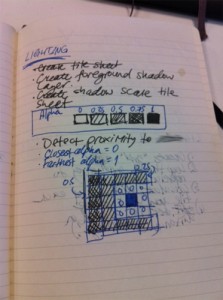 LIGHTING
· Create tile sheet
· Create foreground shadow
layer
· Create shadow scale tile
sheet
Alpha 0 0.25 0.5 0.75 1
· Detect proximity to
closest alpha = 0
furthest alpha = 1
0.75
0.5
0 0 0
0 0
0 0 0